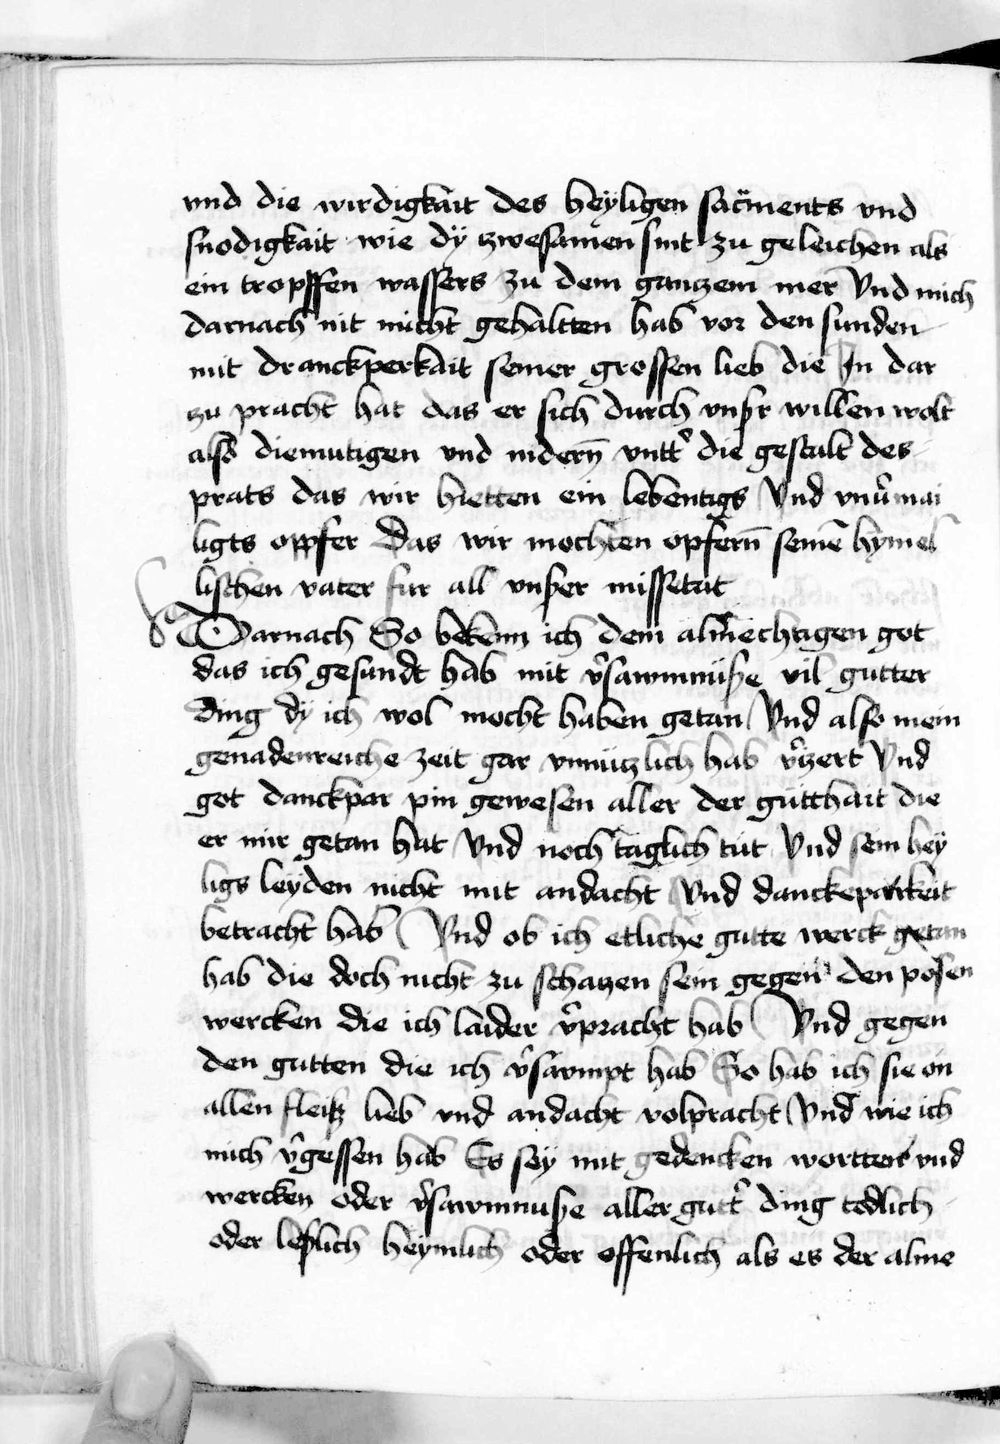 vnd die wirdigkait des heÿligen sacments vnd
snodigkait wie dÿ zwesamen sint zu geleichen als
ein tropffen wassers zu dem gantzem mer Vnd mich
darnach nit nicht gehaltten hab vor den sunden
mit dranckperkait seiner grossen lieb die In dar
zu pracht hat das er sich durch vnsr willen wolt
also diemutigen vnd nidern vntt' die gestalt des
prats das wir hietten ein lebentigs Vnd vnu'mai
ligts opfer Das wir mochten opfern seine hymel
lischen vater fur all vnser missetat
Darnach So bekenn ich dem almechtigen got
das ich gesundt hab mit v'sawmnuse vil gutter
ding dÿ ich wol mocht haben getan Vnd also mein
genadenreiche zeit gar vnnutzlich hab v'zert Vnd
got danckpar pin gewesen aller der gutthait die
er mir getan hat Vnd noch taglich tut Vnd sein hey
ligs leyden nicht mit andacht Vnd danckeparkeit
betracht hab Vnd ob ich etliche gutte werck getan
hab die doch nicht zu schatzen sein gegen den posen
wercken die ich laider v'pracht hab Vnd gegen
den gutten die ich v'sawmpt hab So hab ich sie on
allen fleiß lieb vnd andacht volpracht Vnd wie ich
mich v'gessen hab Es seÿ mit gedencken wortten vnd
wercken oder v'sawmnuse aller gutt' ding todlich
oder leßlich heymlich oder offenlich als es der alme